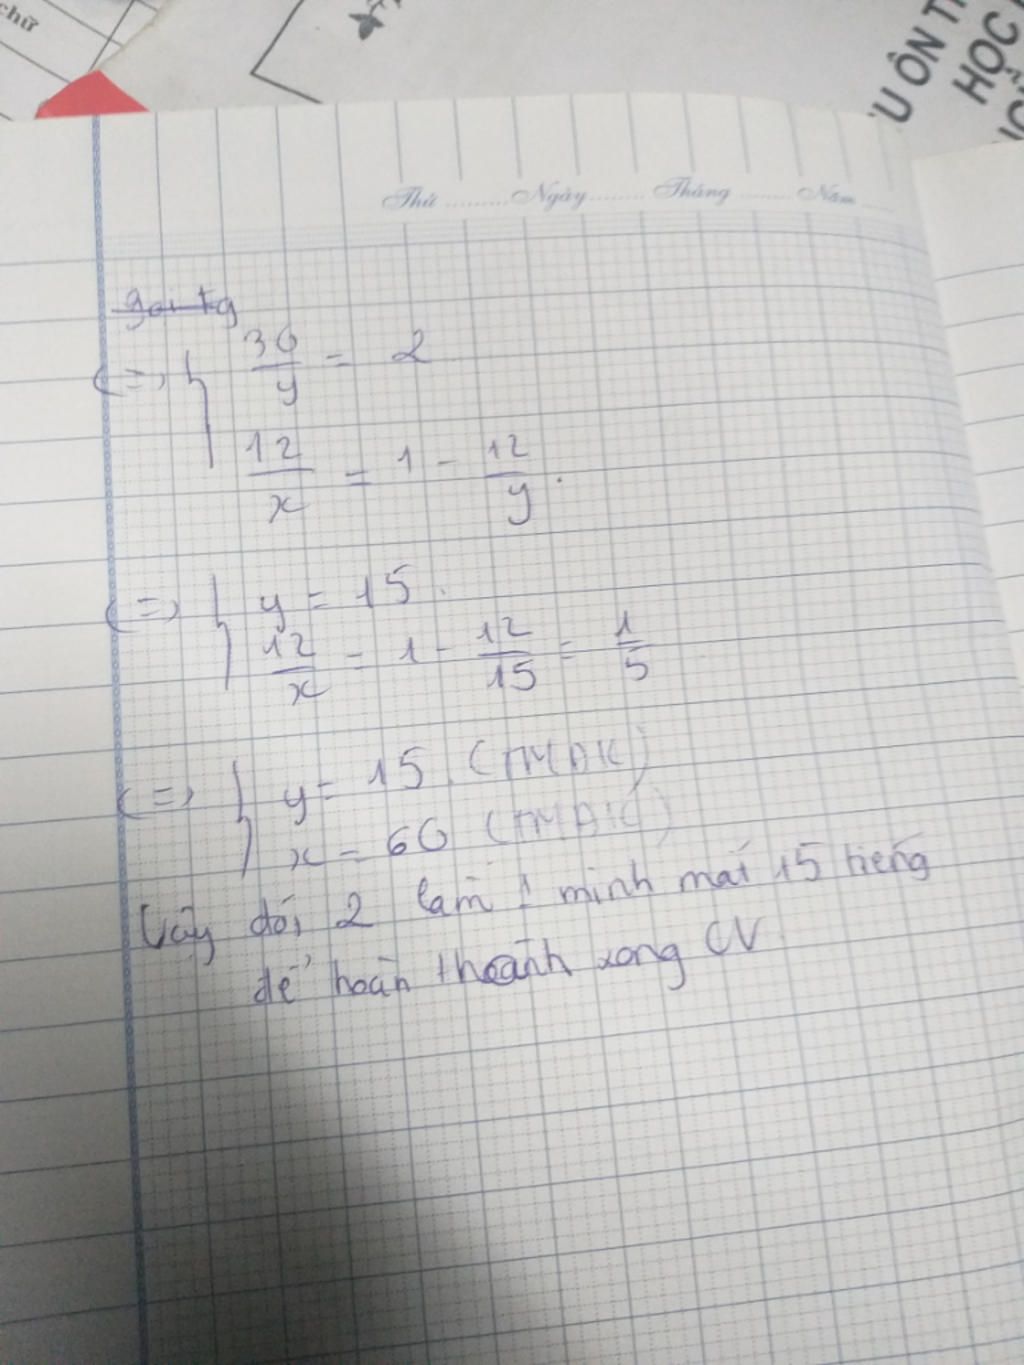 chữ
ÔN T
HỌC
Thứ ......... Ngày ........ Tháng ........ Năm ....
gọi tg
(=) { 30/y = 2
12/x = 1 - 12/y.
(=) { y = 15.
12/x = 1 - 12/15 = 1/5
(=) { y = 15 (TMĐK)
x = 60 (TMĐK)
Vậy đội 2 làm 1 mình mất 15 tiếng
để hoàn thoành xong CV